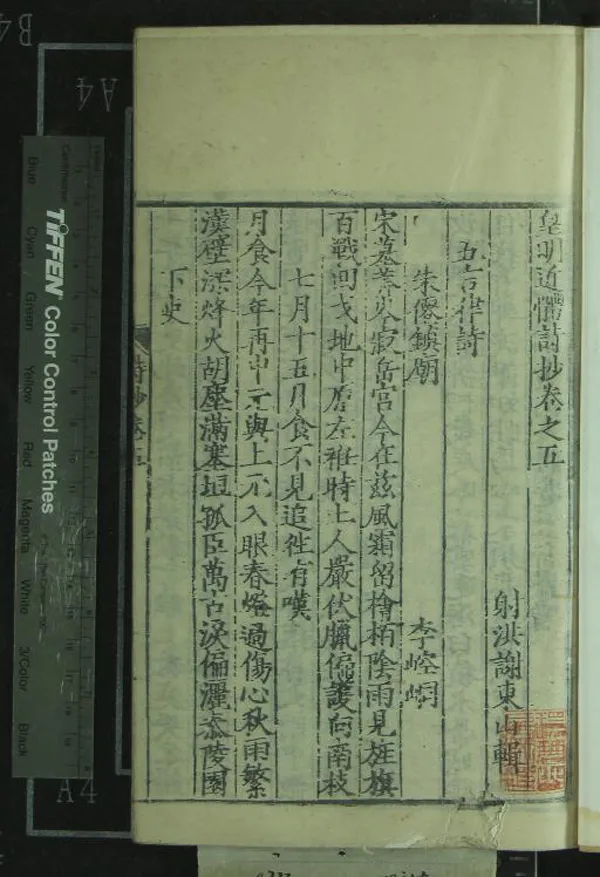 皇明近體詩抄卷之五
射洪謝東山輯
五言律詩
朱僊鎮廟
李崆峒
宋墓莽岑寂岳宮今在茲風霜留檜栢陰雨見旌旗
百戰回戈地中原左袵時土人嚴伏臘偏護向南枝
七月十五月食不見追徃有嘆
月食今年再中元與上元入眼春燈過傷心秋雨繁
漢壁深烽火胡塵滿塞垣孤臣萬古淚偏灑泰陵園
下吏
詩抄卷五
TIFFEN Color Control Patches
Blue
Cyan
Green
Yellow
Red
Magenta
White
3/Color
Black
A4
A4
B4